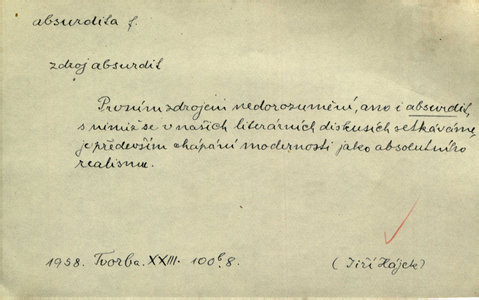 absurdita f.
zdroj absurdit
Prvním zdrojem nedorozumění, ano i absurdit,
s nimiž se v našich literárních diskusích setkáváme,
je především chápání modernosti jako absolutního
realismu.
1958. Tvorba. XXIII. 100b.8. (Jiří Hájek)